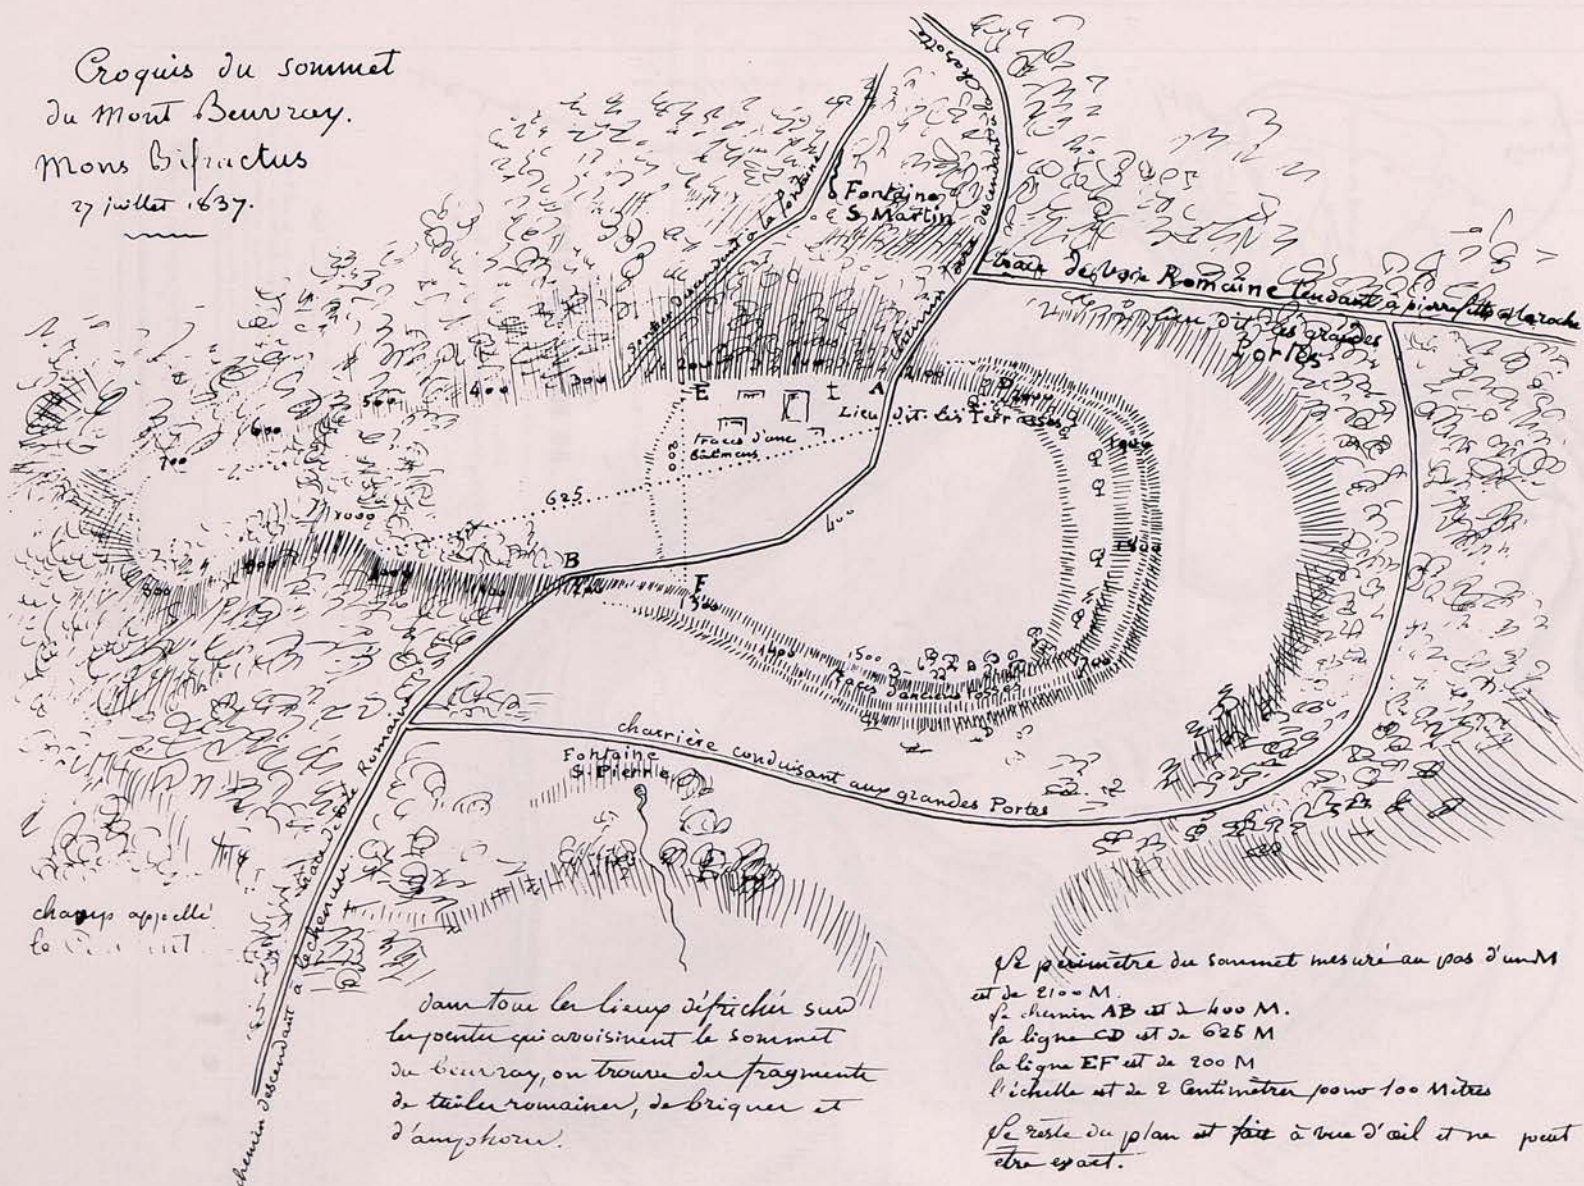 Croquis du sommet
du Mont Beuvray.
Mons Bifractus
27 juillet 1837.
gorges descendant à la fontaine
Fontaine
S Martin
chemin descendant à
trace de voie Romaine tendant à pierrefitte et Laroche
lieu dit les grandes
Portes
700
600
500
400
300
200
100
I
A
E
D
Lieu dit les Terrasses
traces d'anc
bâtimens
200
625
400
1000
900
800
B
F
300
400
500
traces d'anciens fossés
charrière conduisant aux grandes Portes
Fontaine
S. Pierre
trace de voie Romaine
chemin descendant à l'échenum
champ appellé
le
dans tous les lieux défrichés sur
les pentes qui avoisinent le sommet
du beuvray, on trouve des fragments
de tuiles romaines, de briques et
d'amphores.
Le périmètre du sommet mesuré au pas d'un M
est de 2100 M.
Le chemin AB est de 400 M.
la ligne CD est de 625 M
la ligne EF est de 200 M
l'échelle est de 2 Centimètres pour 100 Mètres
Le reste du plan est fait à vue d'œil et ne peut
être exact.